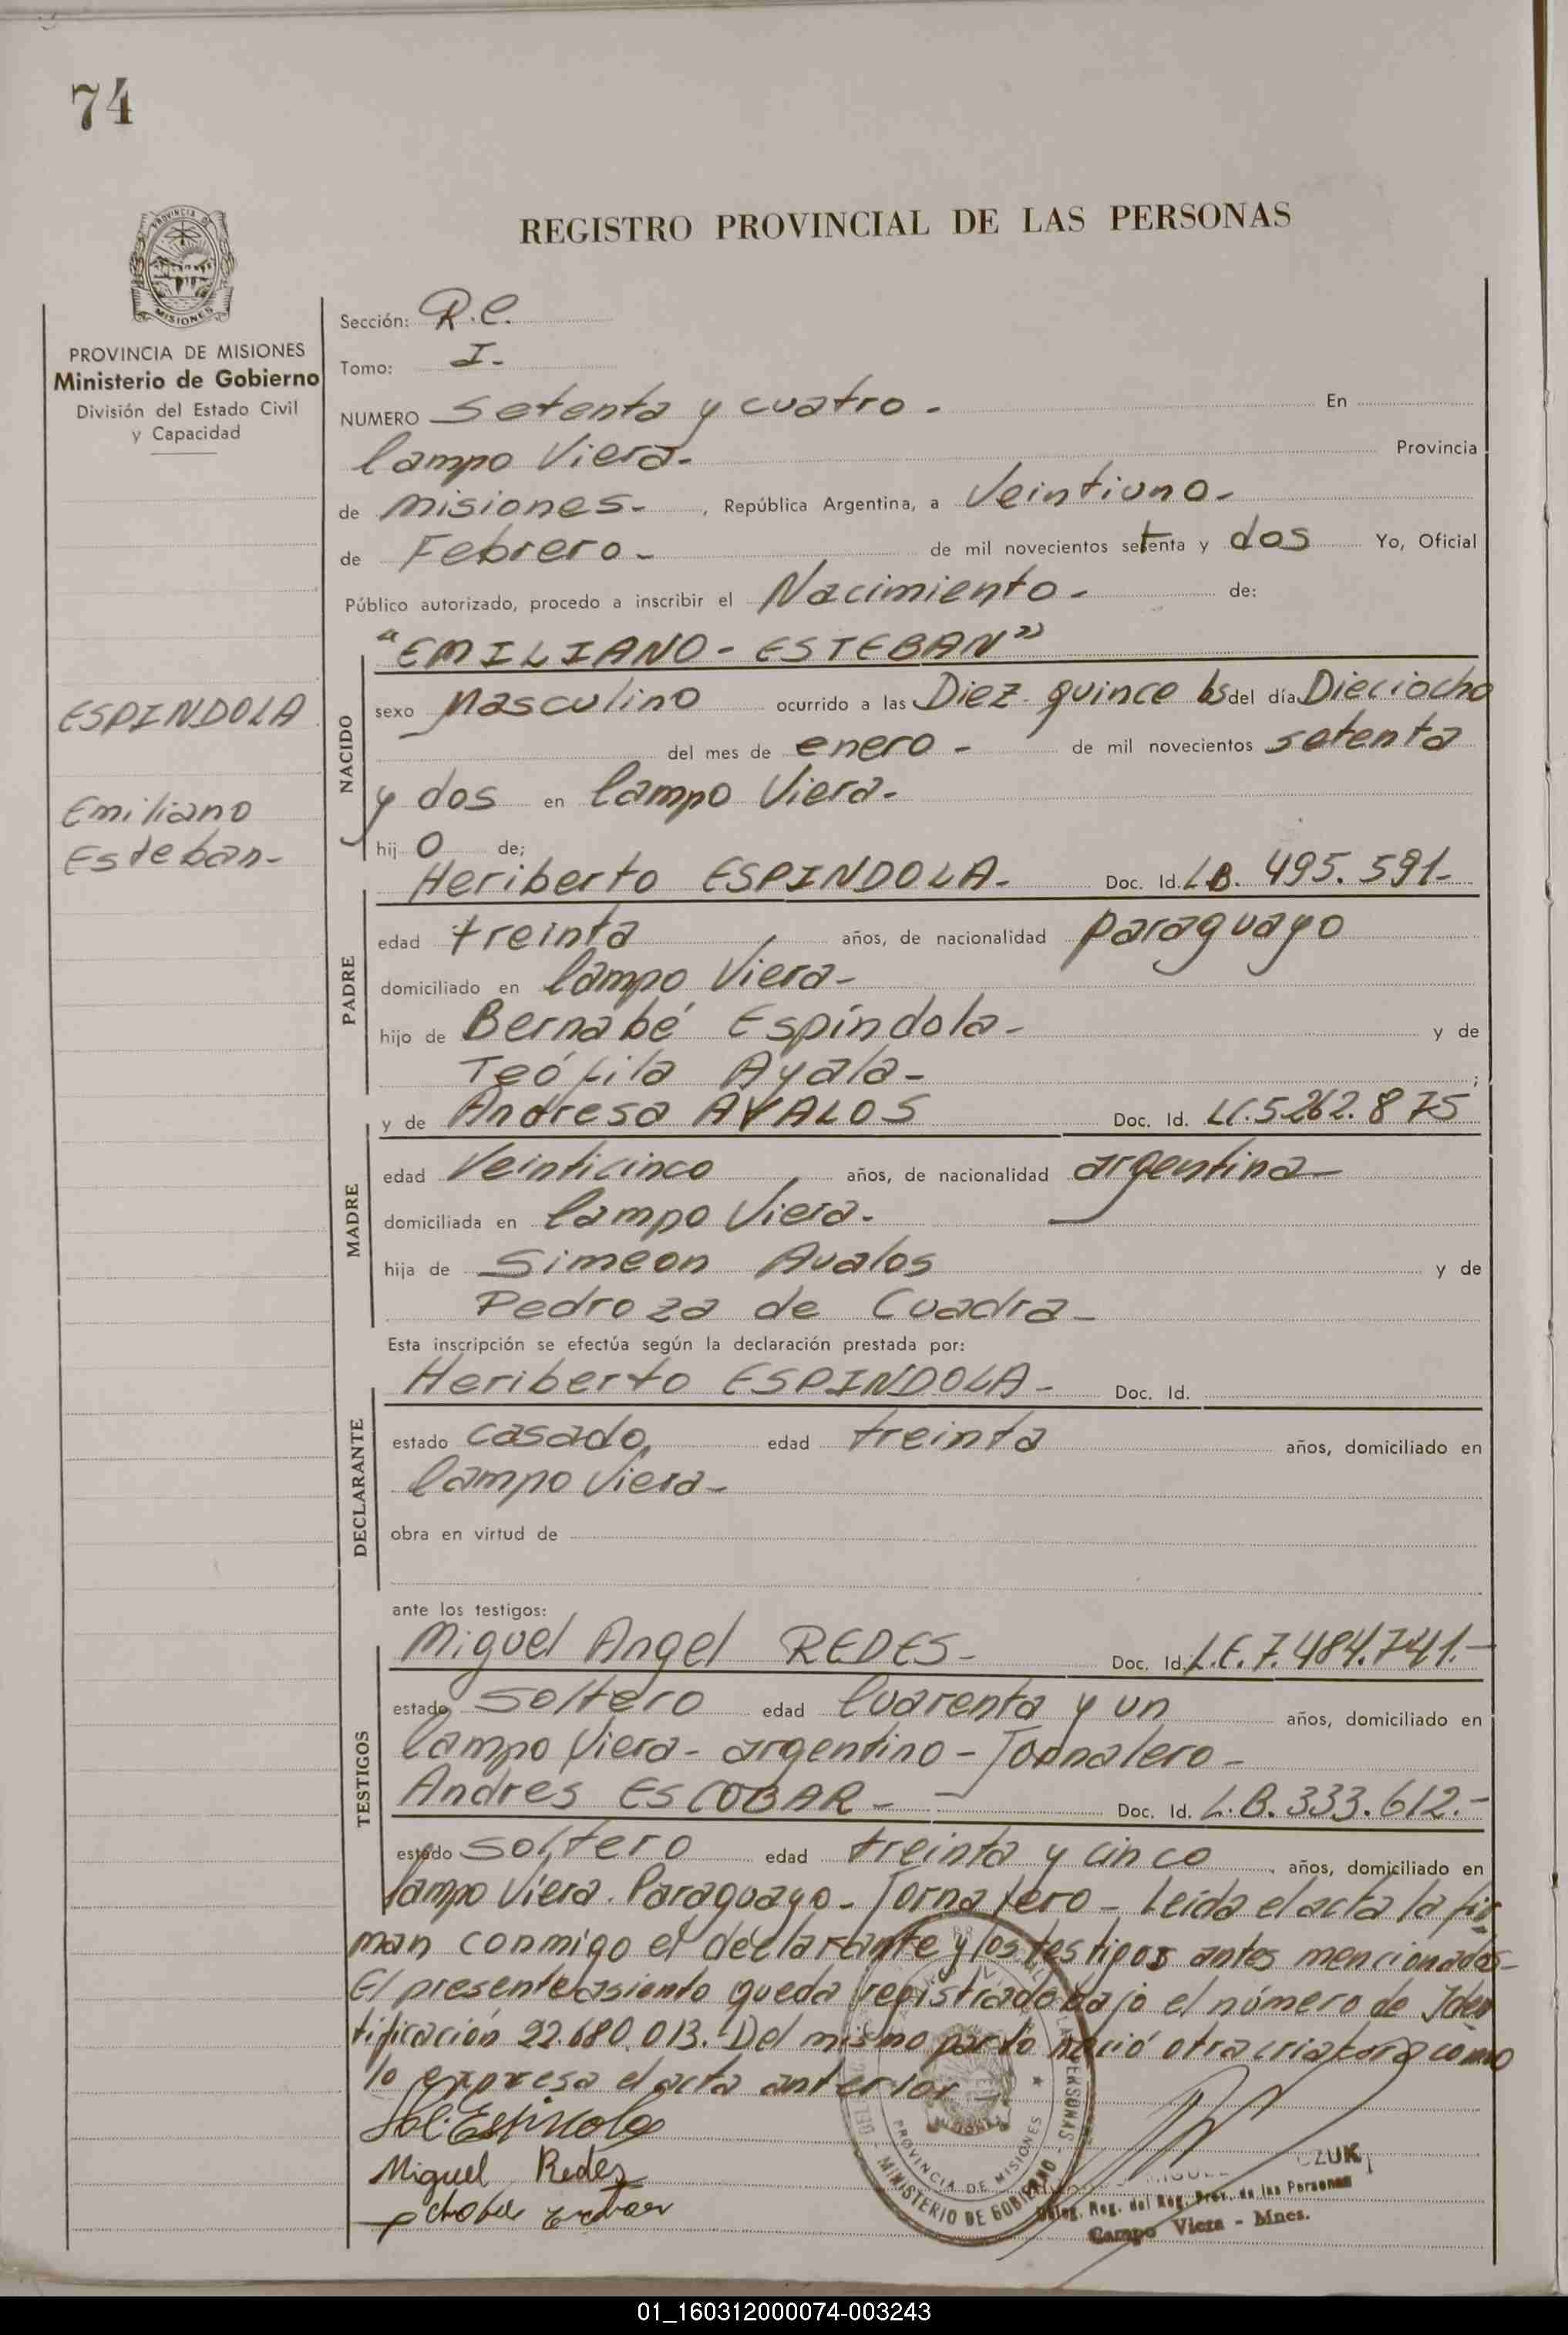 74
REGISTRO PROVINCIAL DE LAS PERSONAS
PROVINCIA DE MISIONES
Ministerio de Gobierno
División del Estado Civil
y Capacidad
ESPINDOLA
Emiliano
Esteban-
Sección: R.C.
Tomo: I-
NUMERO Setenta y cuatro. En
Campo Viera- Provincia
de Misiones-, República Argentina, a Veintiuno-
de Febrero- de mil novecientos setenta y dos Yo, Oficial
Público autorizado, procedo a inscribir el Nacimiento- de:
NACIDO
"EMILIANO-ESTEBAN"
sexo Masculino ocurrido a las Diez quince hs del día Dieciocho
del mes de enero- de mil novecientos setenta
y dos en Campo Viera-
hijo de;
PADRE
Heriberto ESPINDOLA- Doc. Id. L.B. 495.591-
edad treinta años, de nacionalidad paraguayo
domiciliado en Campo Viera-
hijo de Bernabé Espíndola- y de
Teófila Ayala- ;
MADRE
y de Andresa AVALOS Doc. Id. LC.5.262.875
edad Veinticinco años, de nacionalidad argentina-
domiciliada en Campo Viera-
hija de Simeon Avalos y de
Pedroza de Cuadra-
Esta inscripción se efectúa según la declaración prestada por:
DECLARANTE
Heriberto ESPINDOLA- Doc. Id.
estado casado, edad treinta años, domiciliado en
Campo Viera-
obra en virtud de
ante los testigos:
TESTIGOS
Miguel Angel REDES- Doc. Id. L.E.7.484.741.-
estado soltero edad Cuarenta y un años, domiciliado en
Campo Viera- argentino- Jornalero-
Andrés ESCOBAR- Doc. Id. L.B.333.612.-
estado soltero edad treinta y cinco, años, domiciliado en
Campo Viera. Paraguayo- Jornalero- Leída el acta la fir-
man conmigo el declarante y los testigos antes mencionados-
El presente asiento queda registrado bajo el número de Iden
tificación 22.680.013.- Del mismo parto nació otra criatura como
lo expresa el acta anterior
Espindola
Miguel Redes
PROVINCIA DE MISIONES
MINISTERIO DE GOBIERNO
CZUK
Deleg. Reg. del Reg. Prov. de las Personas
Campo Viera - Mnes.
01_160312000074-003243